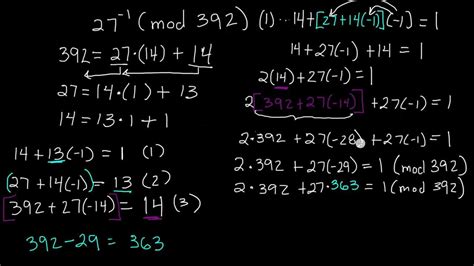 27⁻¹ (mod 392)
392 = 27·(14) + 14
27 = 14·(1) + 13
14 = 13·1 + 1
14 + 13(-1) = 1 (1)
(27 + 14(-1)) = 13 (2)
[392 + 27(-14)] = 14 (3)
392 - 29 = 363
(1)... 14+[27+14(-1)](-1) = 1
14 + 27(-1) + 14 = 1
2(14) + 27(-1) = 1
2[392 + 27(-14)] + 27(-1) = 1
2·392 + 27(-28) + 27(-1) = 1
2·392 + 27(-29) = 1 (mod 392)
2·392 + 27·363 = 1 (mod 392)